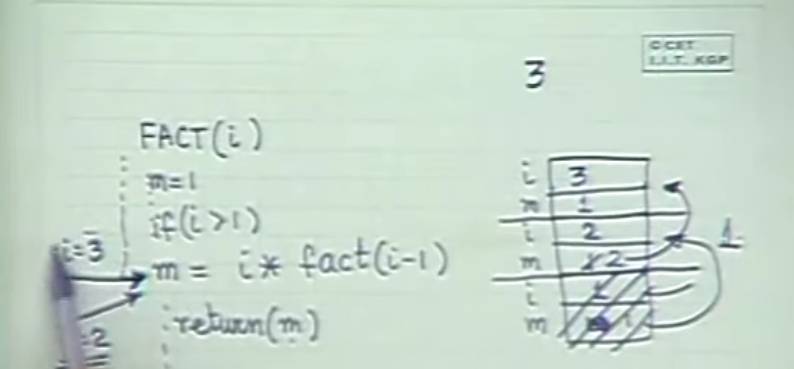 © CET
I.I.T. KGP
3
FACT(i)
m=1
if(i>1)
i=3
m = i* fact(i-1)
=2
return(m)
i 3
m 1
i 2
m 2
i 1
m
1